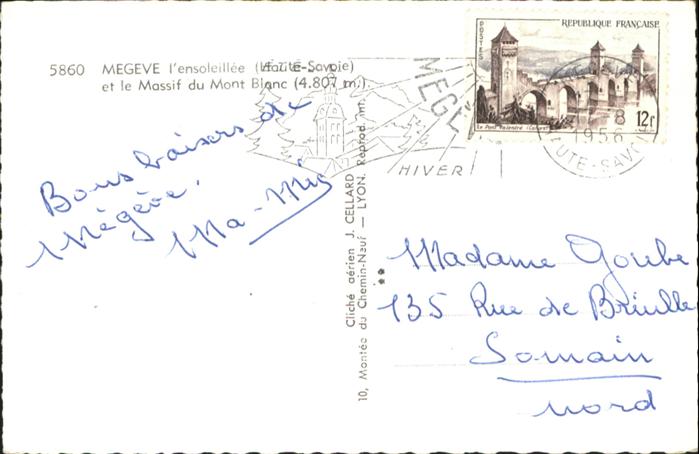 5860 MEGEVE l'ensoleillée (Haute-Savoie)
et le Massif du Mont Blanc (4.807 m.).
POSTES
REPUBLIQUE FRANÇAISE
Le Pont Valentré (Cahors)
12f
MEGÈVE
HIVER
8
1956
HAUTE-SAVOIE
Bons baisers de
Mégève.
Ma-Mie
Cliché aérien J. CELLARD
10, Montée du Chemin-Neuf — LYON. Reprod. int.
Madame Goube
135 Rue de Bruille
Somain
Nord